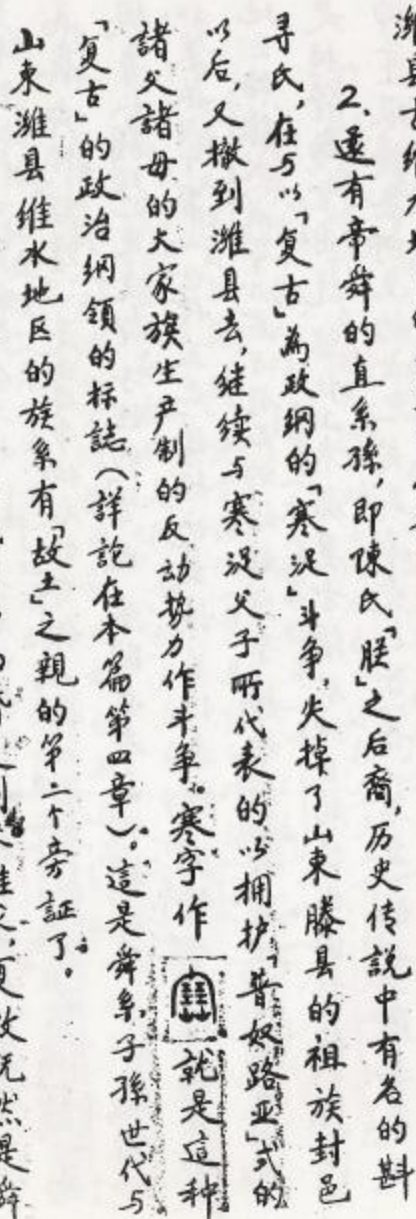 潍县古
2.还有帝舜的直系孫，即陳氏「朕」之后裔，历史传説中有名的斟
寻氏，在与以「复古」為政纲的「寒浞」斗争，失掉了山東滕县的祖族封邑
以后，又撤到潍县去，继续与寒浞父子所代表的以拥护「普奴路亚」式的
諸父諸母的大家族生产制的反动势力作斗争。寒字作 就是這种
「复古」的政治纲領的标誌（詳説在本篇第四章）。這是舜系子孫世代与
山東潍县維水地区的族系有「故土」之親的第二个旁証了。
既然是舜